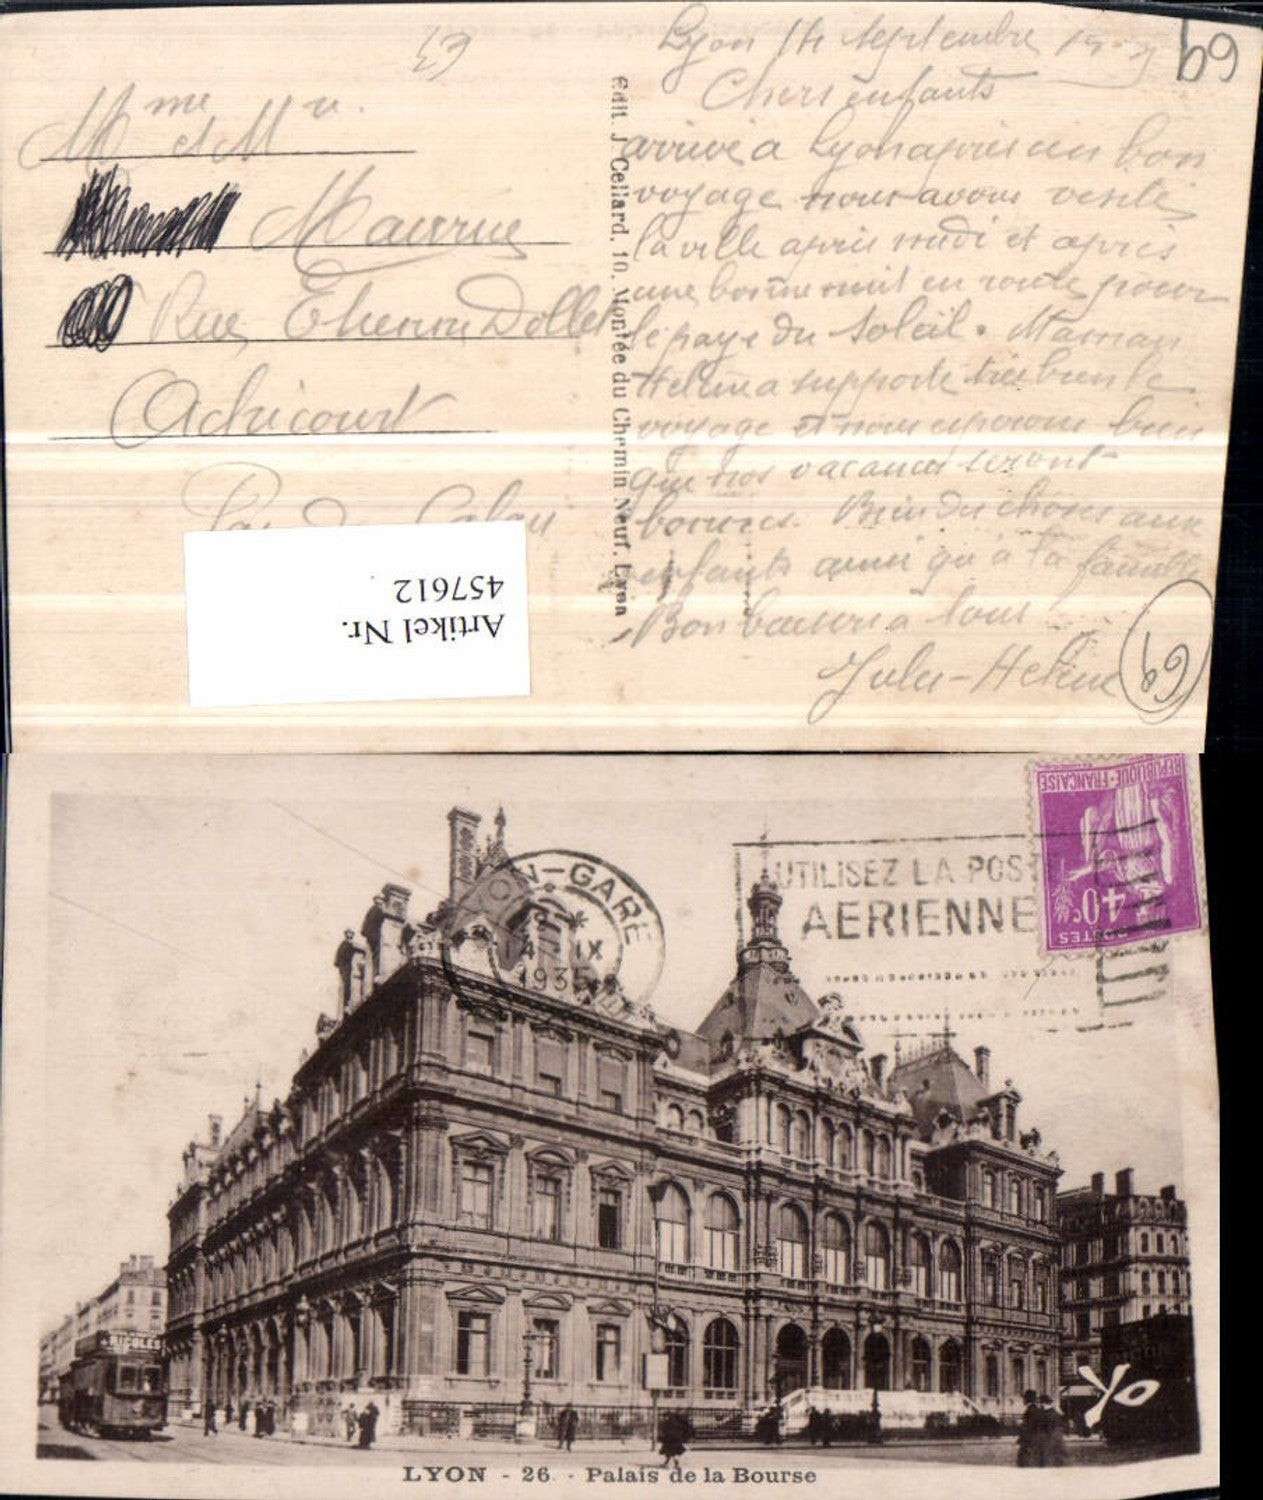 63
Mme et Mr.
Rue Etienne Dollet
Achicourt
Pas de Calais
Artikel Nr.
457612
Edit. J. Cellard, 10, Montée du Chemin Neuf, Lyon
69
Lyon 14 septembre
Chers enfants
arrivé a Lyon apres un bon
voyage nous avons visité
la ville apres midi et apres
une bonne nuit en route pour
le pays du soleil. Maman
Helena supporte tres bien le
voyage et nous esperons bien
que nos vacances seront
bonnes. Bien du choses aux
enfants ainsi qu'à ta famille
Bon baisers à tous
Jules-Helene
69
REPUBLIQUE-FRANÇAISE
40c
POSTES
LYON-GARE
14 IX
1935
UTILISEZ LA POSTE
AERIENNE
Yo
LYON - 26. - Palais de la Bourse